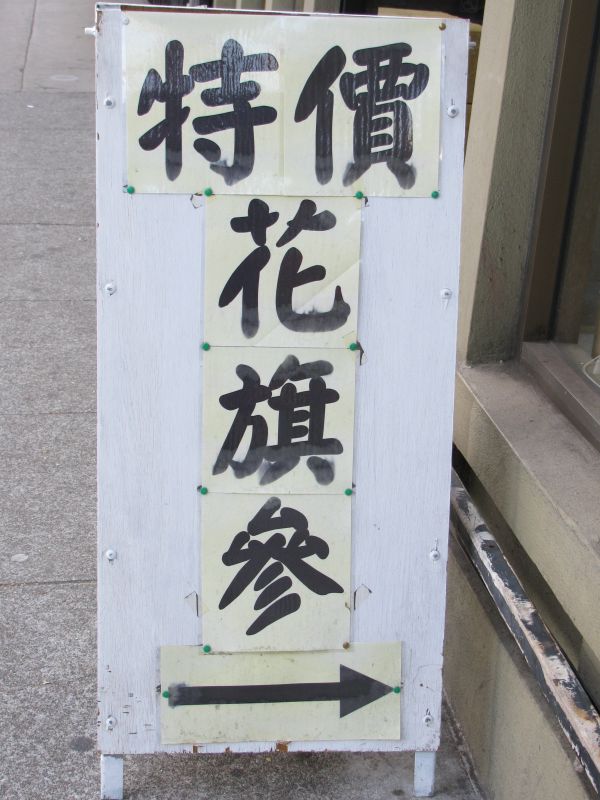 特價
花
旗
參